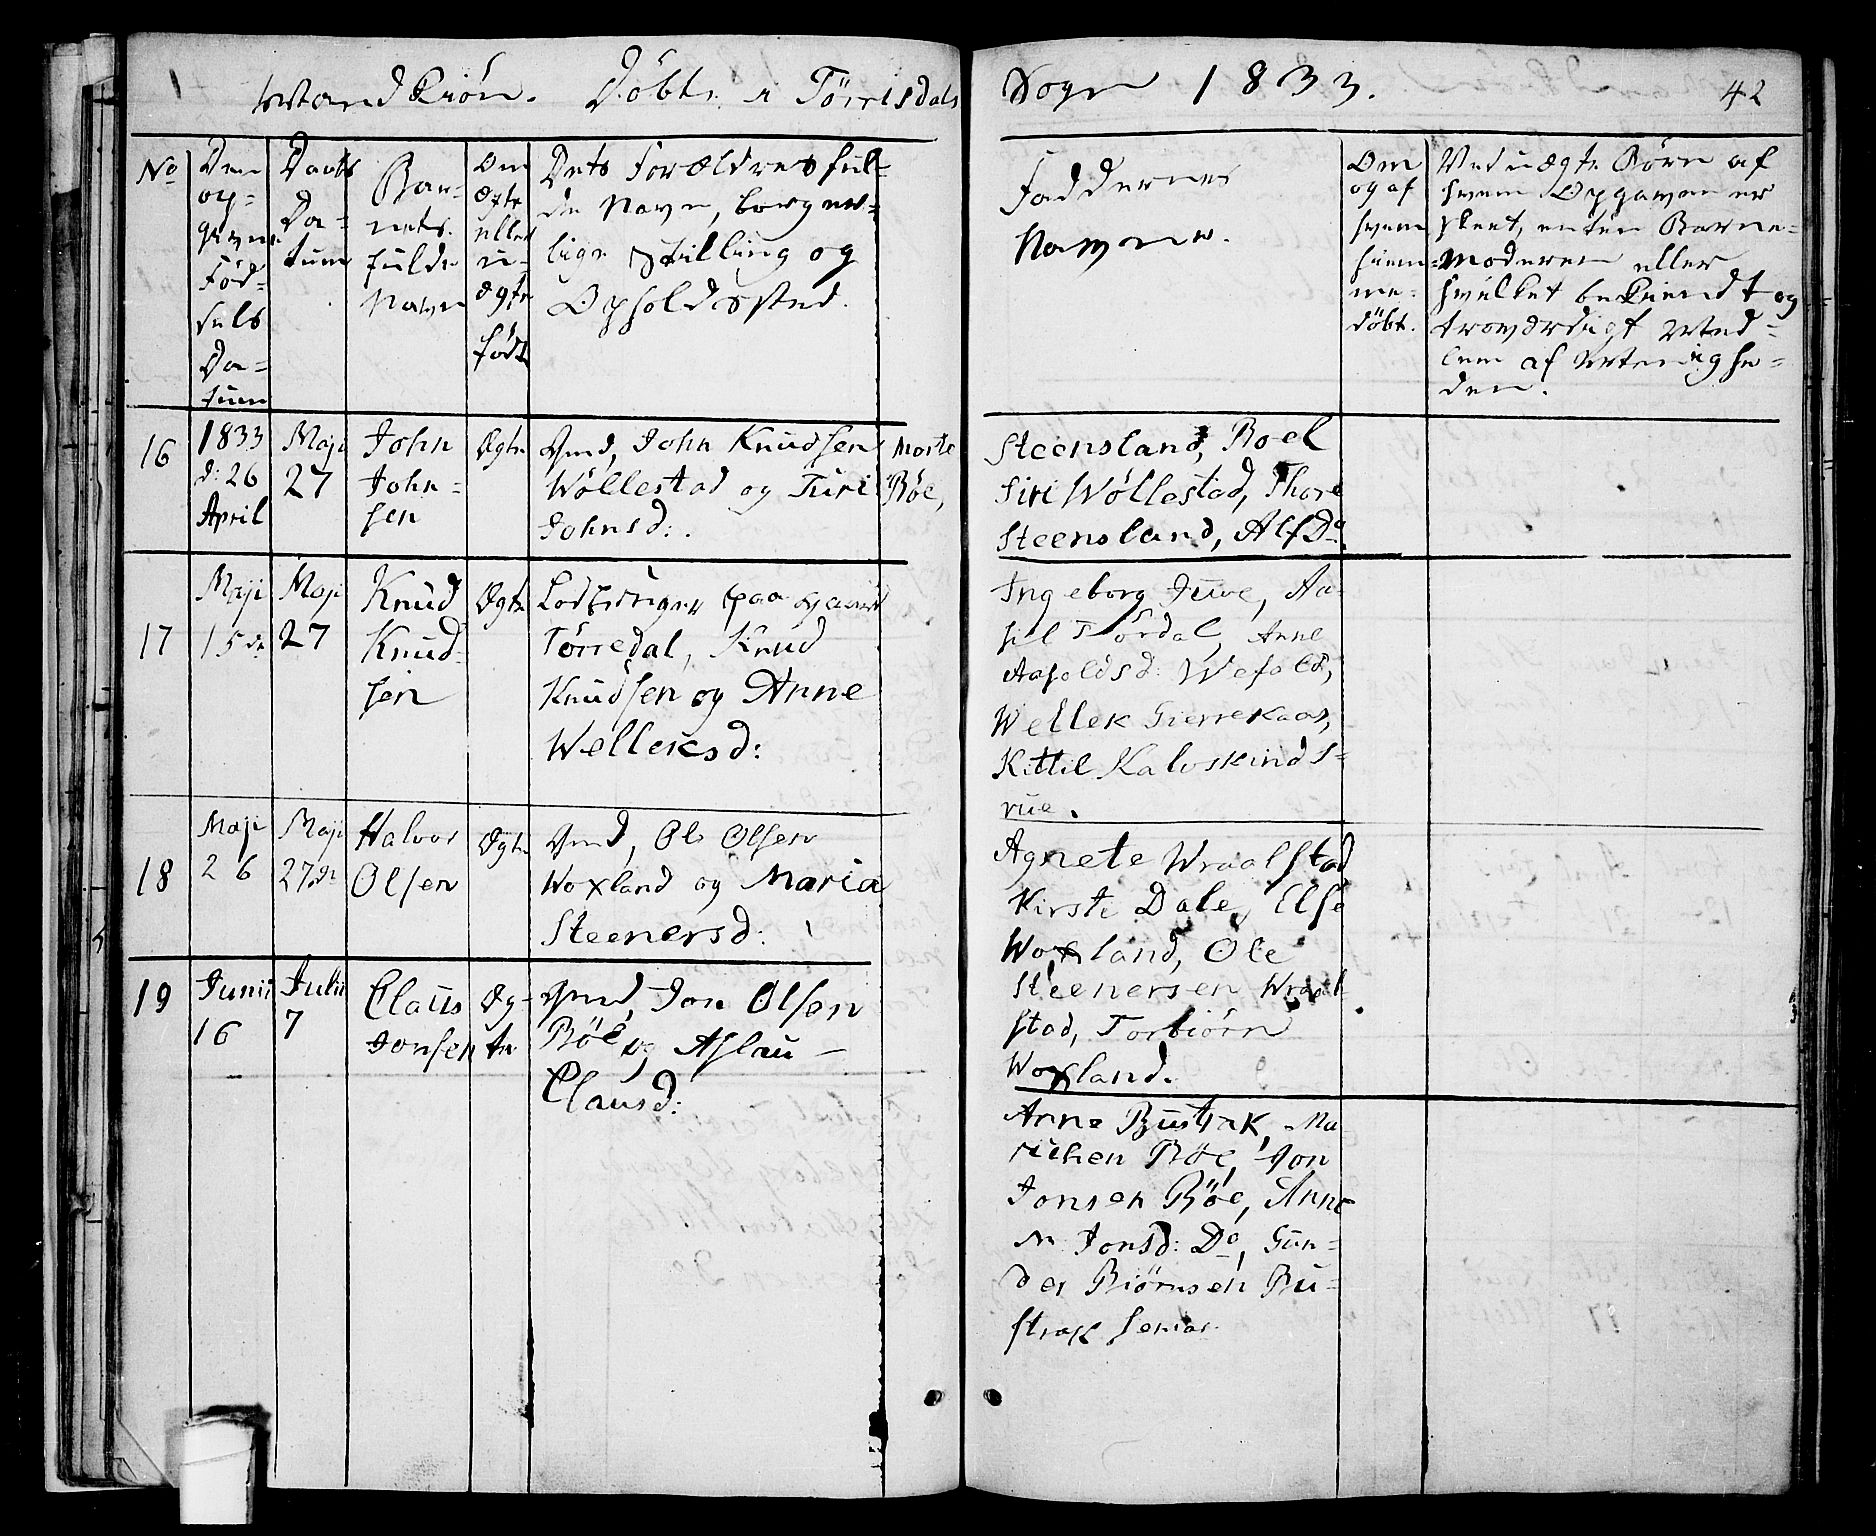 Mandkiön. Döbte i Törrisdals Sogn 1833.
42
No
Den
op-
givne
Fød-
sels
Da-
tum
Daabs
Da-
tum
Bar-
nets
fulde
Navn
Om
ægte
eller
u-
ægte
født
Dets Forældres ful-
de Navn, borger-
lige Stilling og
Opholdssted.
Faddernes
Navne.
Om
og af
hvem
hiem-
me-
döbt.
Ved uægte Börn af
hvem Opgaven er
skeet, enten Barne-
Moderen eller
hvilket bekiendt og
troværdigt Med-
lem af Menighe-
den.
16
1833
d: 26
April
Maji
27
John
John-
sen
Ægte
Gmd, John Knudsen
Wöllestad og Turi
Johnsd:.
Morte
Böe,
Steensland, Roel
Siri Wöllestad, Thore
Steensland, Alf Do.
17
Maji
15de
Maji
27
Knud
Knud-
sen
Ægte
paa Gaard
Törredal, Knud
Knudsen og Anne
Welleksd:
Ingeborg Juve, Aa-
sil Tördal, Anne
Aasoldsd: Wefald,
Wellek Gierrekaas,
Kittil Kalvskinds-
rue.
18
Maji
26
Maji
27de
Halvor
Olsen
Ægte
Gmd, Ole Olsen
Woxland og Maria
Steenersd:
Agnete Wraalstad
Kirste Dale, Else
Woxland, Ole
Steenersen Wraal-
stad, Torbiörn
Woxland.
19
Junii
16
Julii
7
Claus
Jonsen
Æg-
te
Gmd, Jon Olsen
Böe og Aslau
Clausd:
Anne Bustrak, Ma
richen Böe, Jon
Jonsen Böe, Anne
M. Jonsd: Do, Gun-
der Biörnsen Bu-
strak